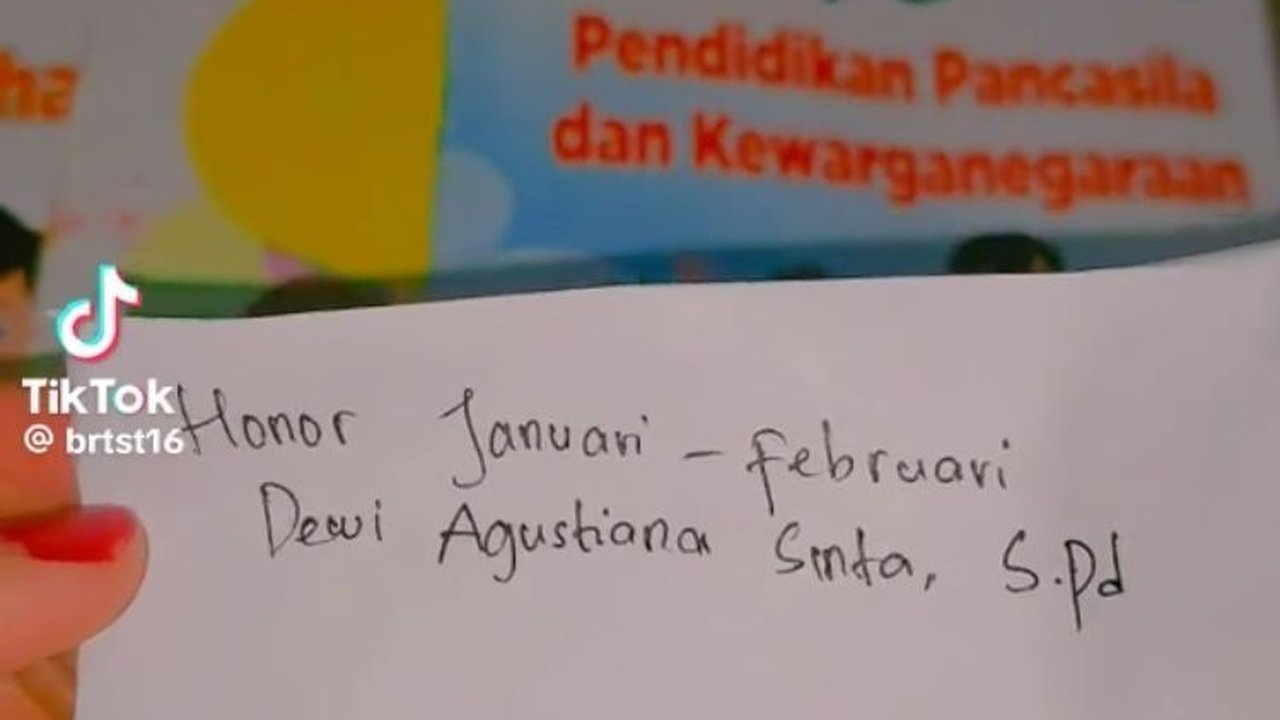 Pendidikan Pancasila
dan Kewarganegaraan
TikTok
@ brtst16
Honor Januari - Februari
Dewi Agustiana Sinta, S.Pd